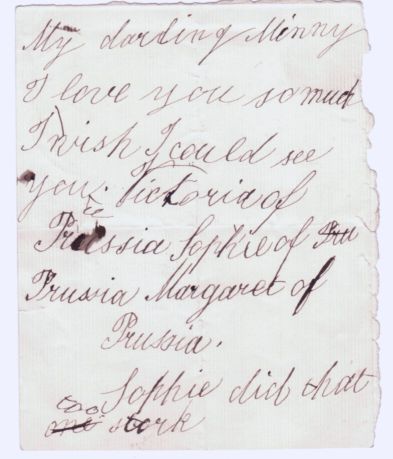 My darling Minny
I love you so much
I wish I could see
you. Victoria of
Prussia Sophie of Pru
Prussia Margaret of
Prussia.
Sophie did that
too
me stork